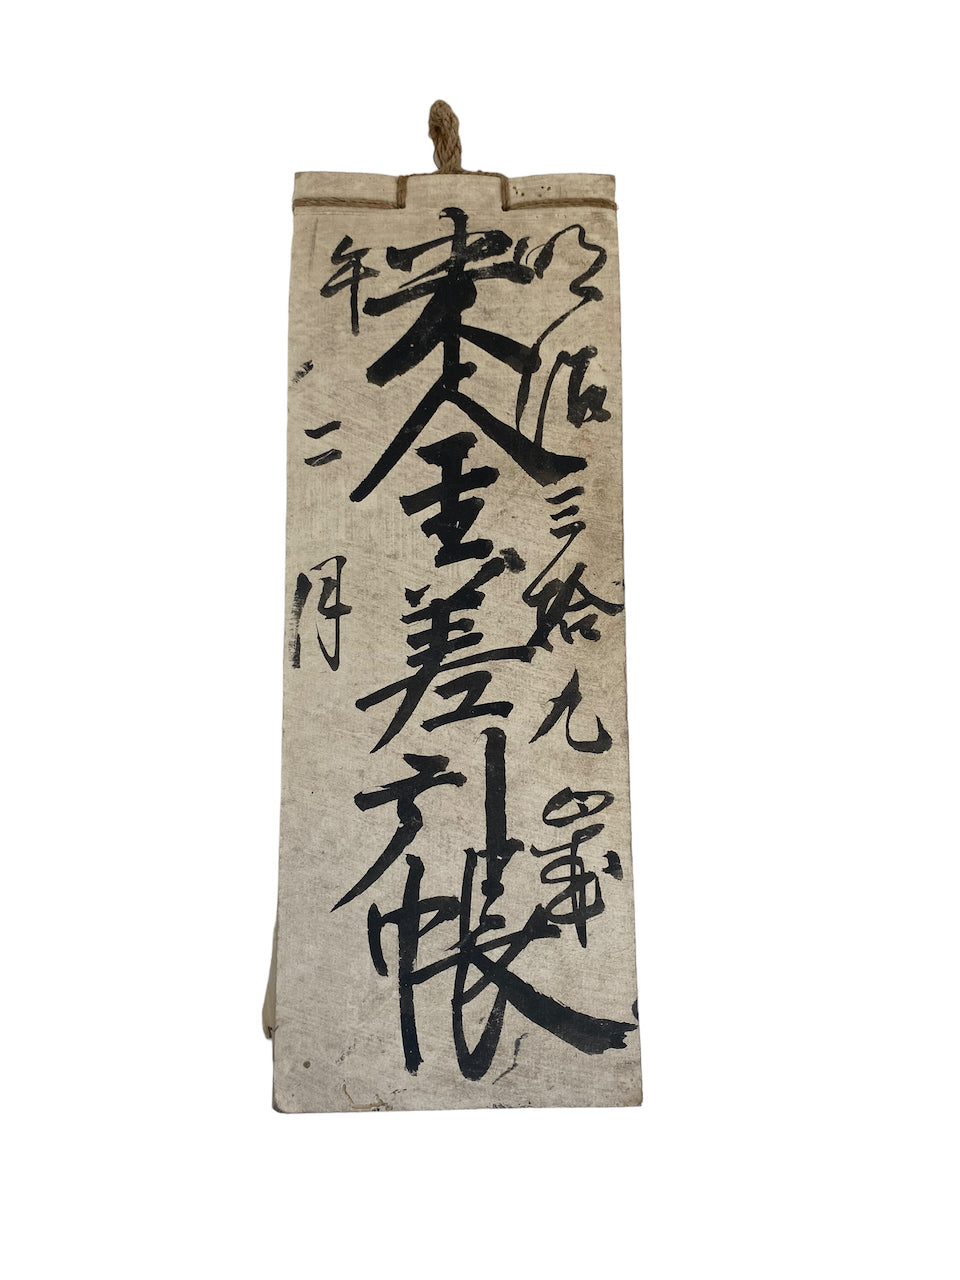 明治三拾九歳
米金差引帳
午二月